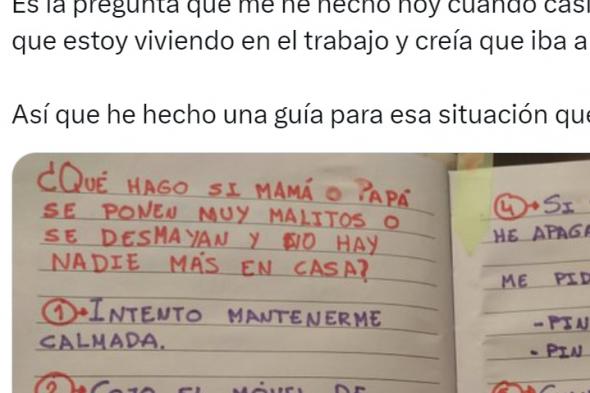 Es la pregunta que me he hecho hoy cuando casi
que estoy viviendo en el trabajo y creía que iba a
Así que he hecho una guía para esa situación que
¿QUÉ HAGO SI MAMÁ O PAPÁ
SE PONEN MUY MALITOS O
SE DESMAYAN Y NO HAY
NADIE MÁS EN CASA?
1 INTENTO MANTENERME
CALMADA.
2 COJO EL MÓVIL DE
4 SI
HE APAGA
ME PID
-PIN
- PIN